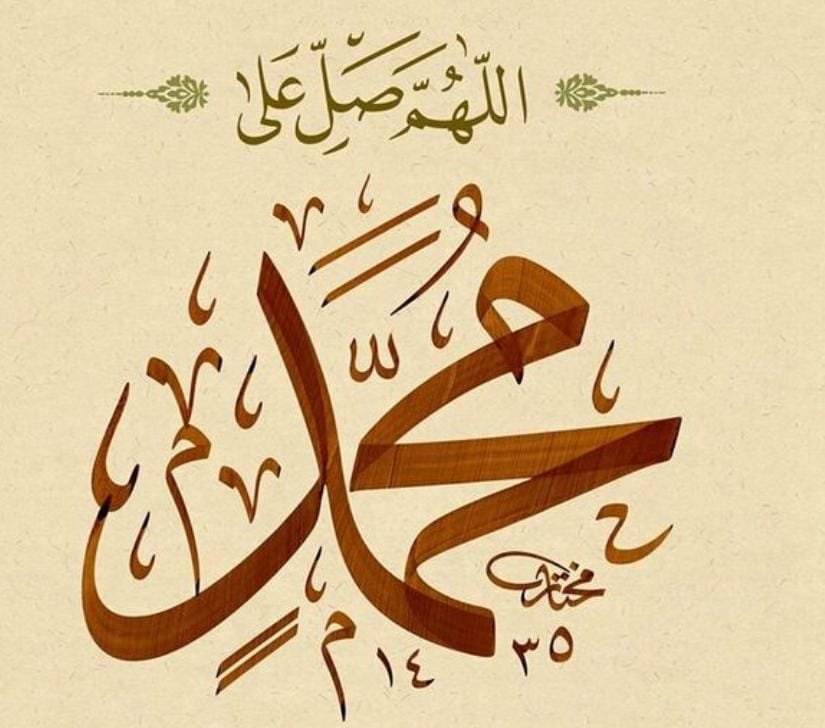 اللّٰهُمَّ صَلِّ عَلىٰ
مُحَمَّدٍ
مختار
١٤ ٣٥